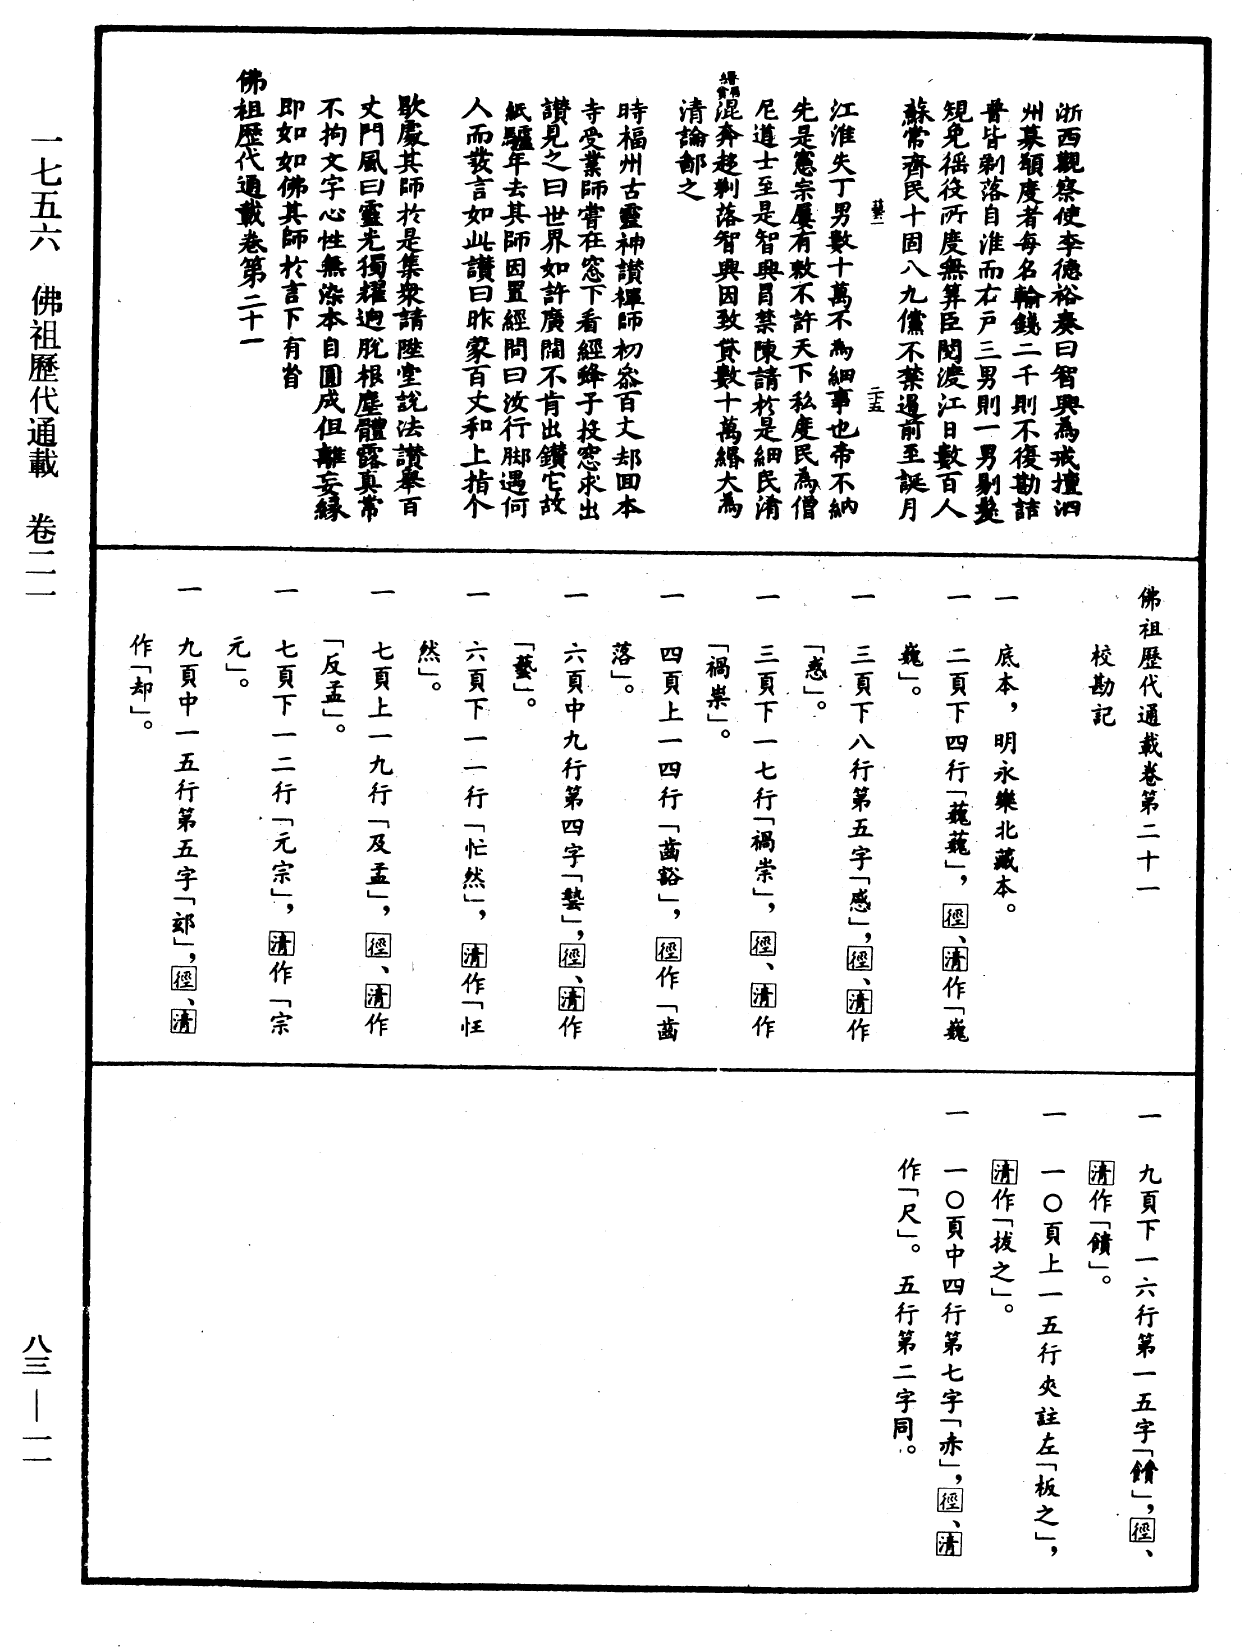 一七五六　佛祖歷代通載　卷二一
浙西觀察使李德裕奏曰智興為戒壇泗
州募願度者每名輸錢二千則不復勘詰
普皆剃落自淮而右戶三男則一男剔髮
規免徭役所度無筭臣閱渡江日數百人
蘇常齊民十固八九儻不禁遏前至誕月
藝一　二十五
江淮失丁男數十萬不為細事也帝不納
先是憲宗屢有敕不許天下私度民為僧
尼道士至是智興冒禁陳請於是細民淆
混奔趍剃落智興因致貲數十萬緡大為
清論鄙之
時福州古靈神讚禪師初叅百丈却回本
寺受業師嘗在窓下看經蜂子投窓求出
讚見之曰世界如許廣闊不肯出鑽它故
紙驢年去其師因置經問曰汝行脚遇何
人而發言如此讚曰昨蒙百丈和上指个
歇處其師於是集衆請陞堂說法讚舉百
丈門風曰靈光獨耀逈脫根塵體露真常
不拘文字心性無染本自圓成但離妄緣
即如如佛其師於言下有省
佛祖歷代通載卷第二十一
佛祖歷代通載卷第二十一
校勘記
一　底本，明永樂北藏本。
一　二頁下四行「蘶蘶」，徑、清作「巍
巍」。
一　三頁下八行第五字「感」，徑、清作
「惑」。
一　三頁下一七行「禍崇」，徑、清作
「禍祟」。
一　四頁上一四行「齒豁」，徑作「齒
落」。
一　六頁中九行第四字「埶」，徑、清作
「藝」。
一　六頁下一一行「忙然」，清作「恇
然」。
一　七頁上一九行「及孟」，徑、清作
「反孟」。
一　七頁下一二行「元宗」，清作「宗
元」。
一　九頁中一五行第五字「郄」，徑、清
作「却」。
一　九頁下一六行第一五字「饋」，徑、
清作「饋」。
一　一〇頁上一五行夾註左「板之」，
清作「拔之」。
一　一〇頁中四行第七字「赤」，徑、清
作「尺」。五行第二字同。
八三—一一